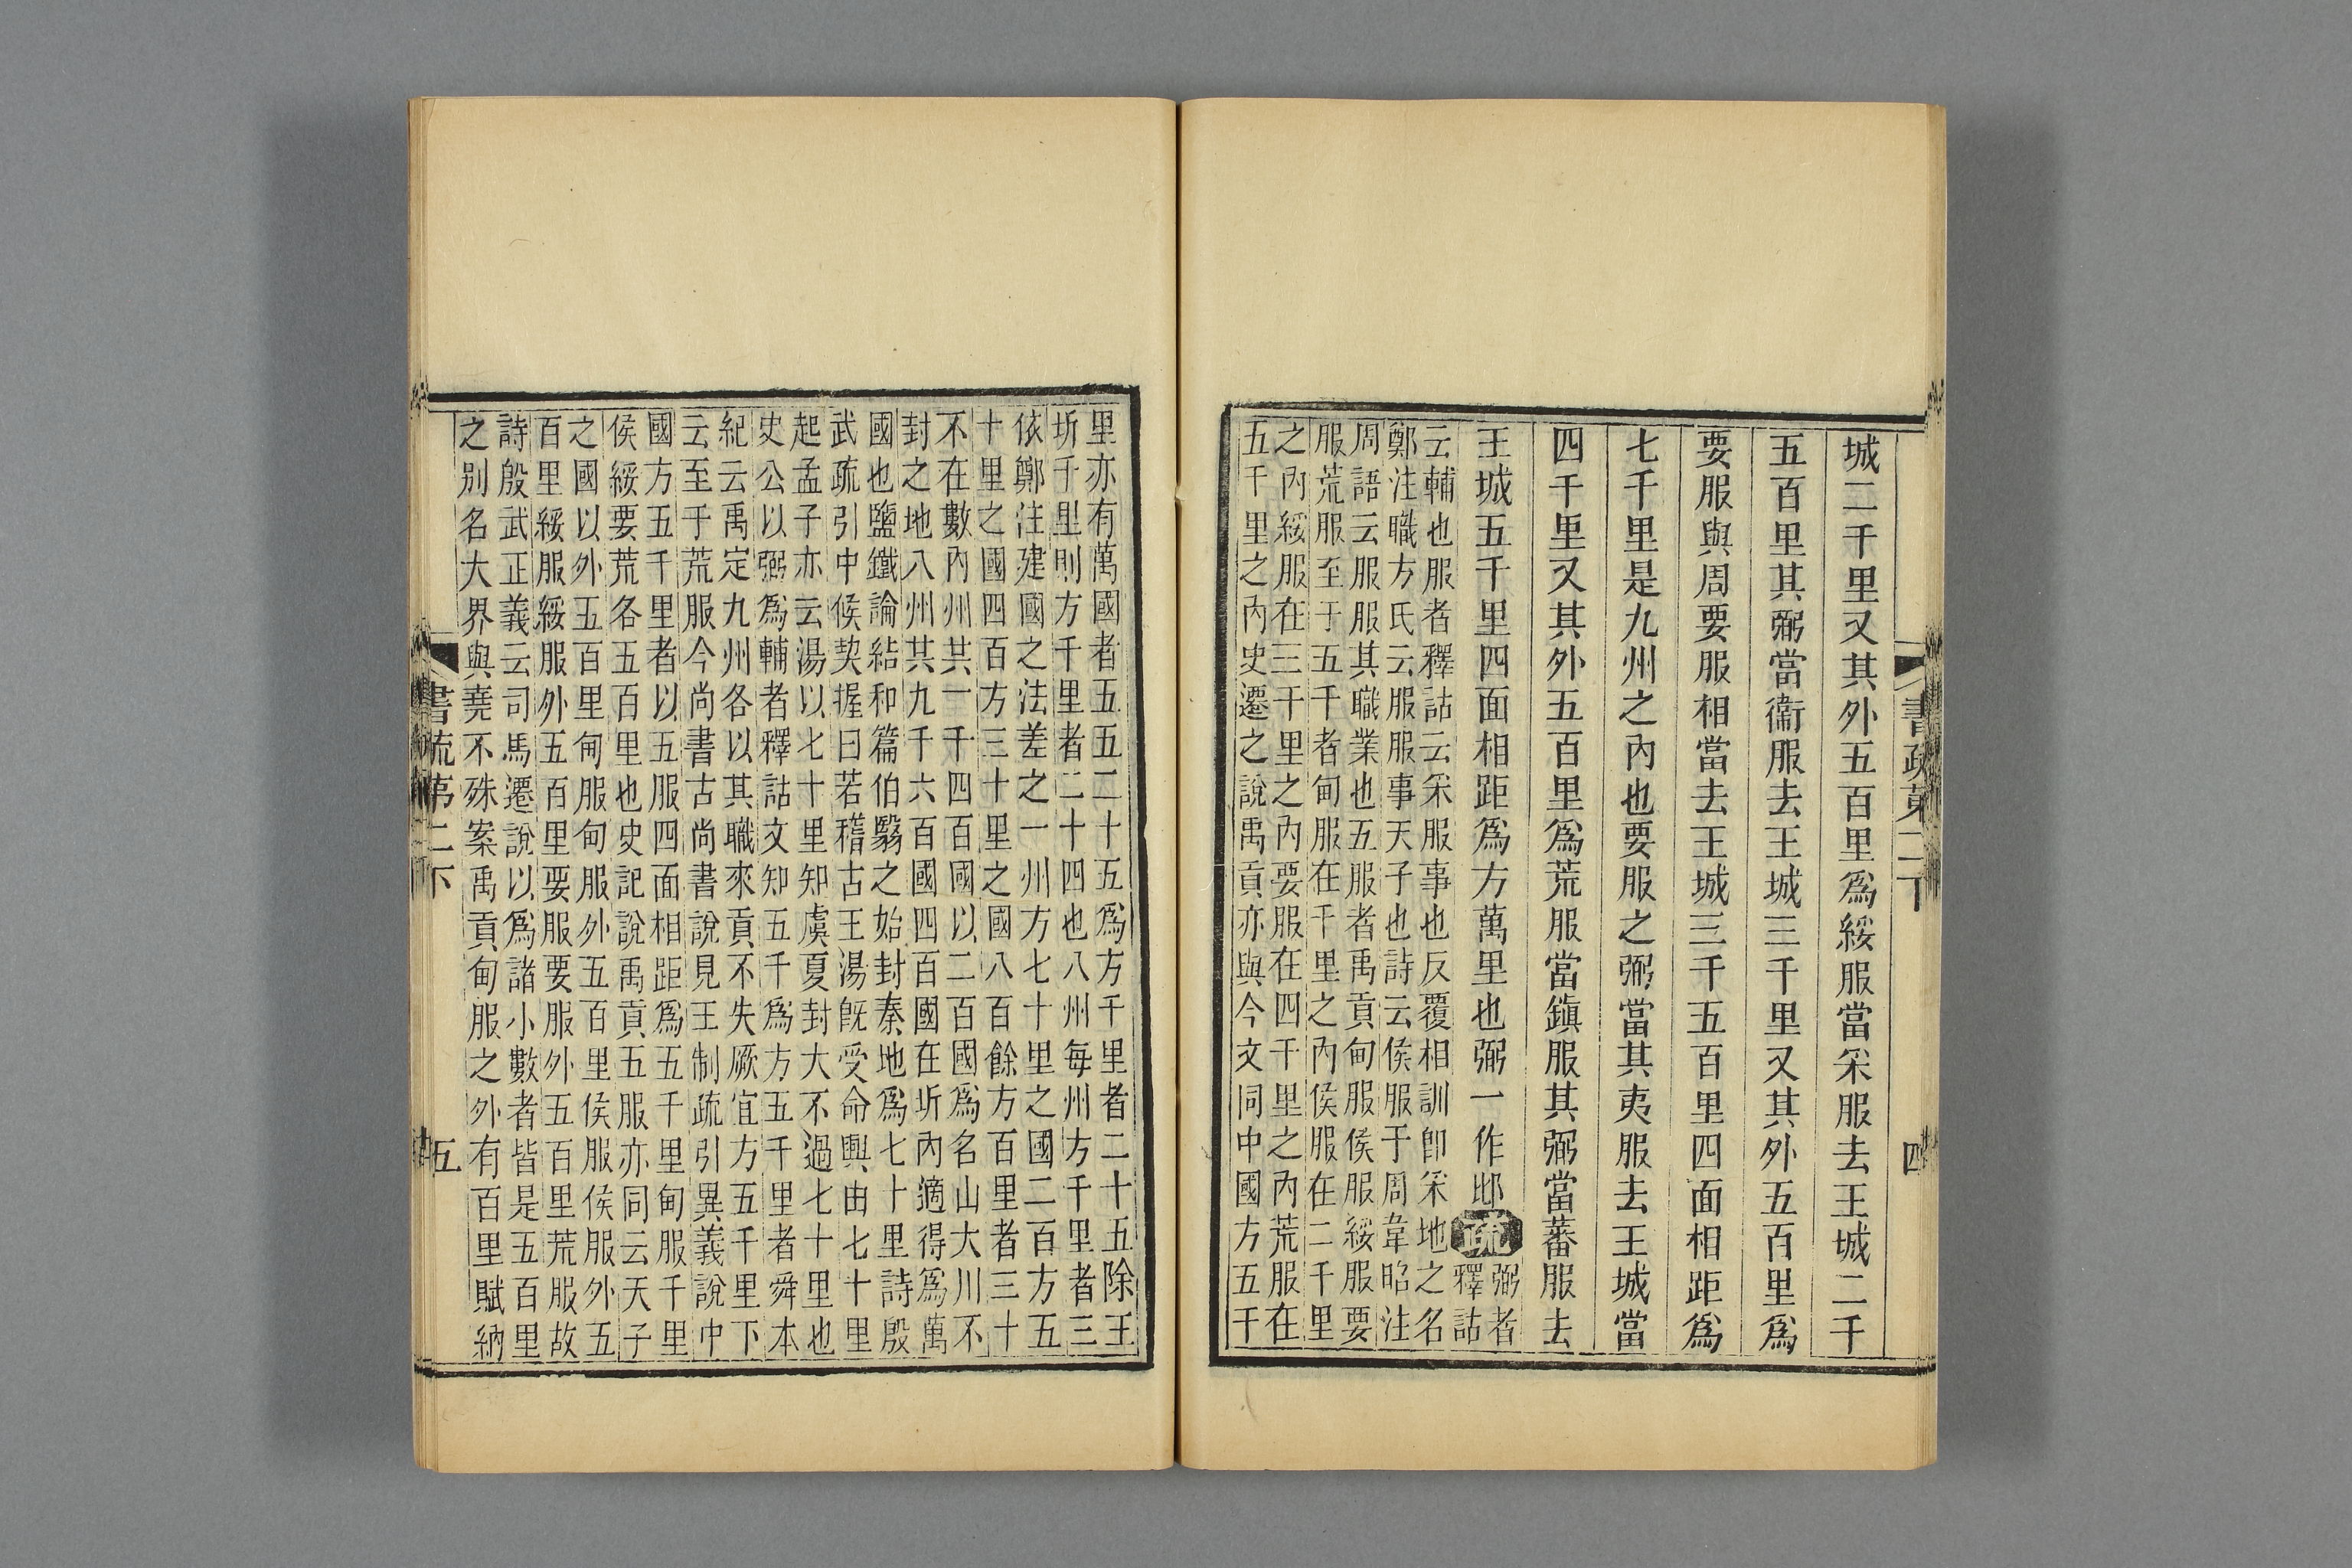 書疏第二下
四
城二千里又其外五百里爲綏服當采服去王城二千
五百里其弼當衞服去王城三千里又其外五百里爲
要服與周要服相當去王城三千五百里四面相距爲
七千里是九州之內也要服之弼當其夷服去王城當
四千里又其外五百里爲荒服當鎭服其弼當蕃服去
王城五千里四面相距爲方萬里也弼一作邶疏弼者
釋詁
云輔也服者釋詁云采服事也反覆相訓卽采地之名
鄭注職方氏云服服事天子也詩云侯服于周韋昭注
周語云服服其職業也五服者禹貢甸服侯服綏服要
服荒服至于五千者甸服在千里之內侯服在二千里
之內綏服在三千里之內要服在四千里之內荒服在
五千里之內史遷之說禹貢亦與今文同中國方五千
里亦有萬國者五五二十五爲方千里者二十五除王
圻千里則方千里者二十四也八州每州方千里者三
依鄭注建國之法差之一州方七十里之國二百方五
十里之國四百方三十里之國八百餘方百里者三十
不在數內州共一千四百國以二百國爲名山大川不
封之地八州其九千六百國四百國在圻內適得爲萬
國也鹽鐵論結和篇伯翳之始封秦地爲七十里詩殷
武疏引中候契握曰若稽古王湯旣受命興由七十里
起孟子亦云湯以七十里知虞夏封大不過七十里也
史公以弼爲輔者釋詁文知五千爲方五千里者舜本
紀云禹定九州各以其職來貢不失厥宜方五千里下
云至于荒服今尚書古尚書說見王制疏引異義說中
國方五千里者以五服四面相距爲五千里甸服千里
侯綏要荒各五百里也史記說禹貢五服亦同云天子
之國以外五百里甸服甸服外五百里侯服侯服外五
百里綏服綏服外五百里要服要服外五百里荒服故
詩殷武正義云司馬遷說以爲諸小數者皆是五百里
之別名大界與堯不殊案禹貢甸服之外有百里賦納
書疏第二下
五